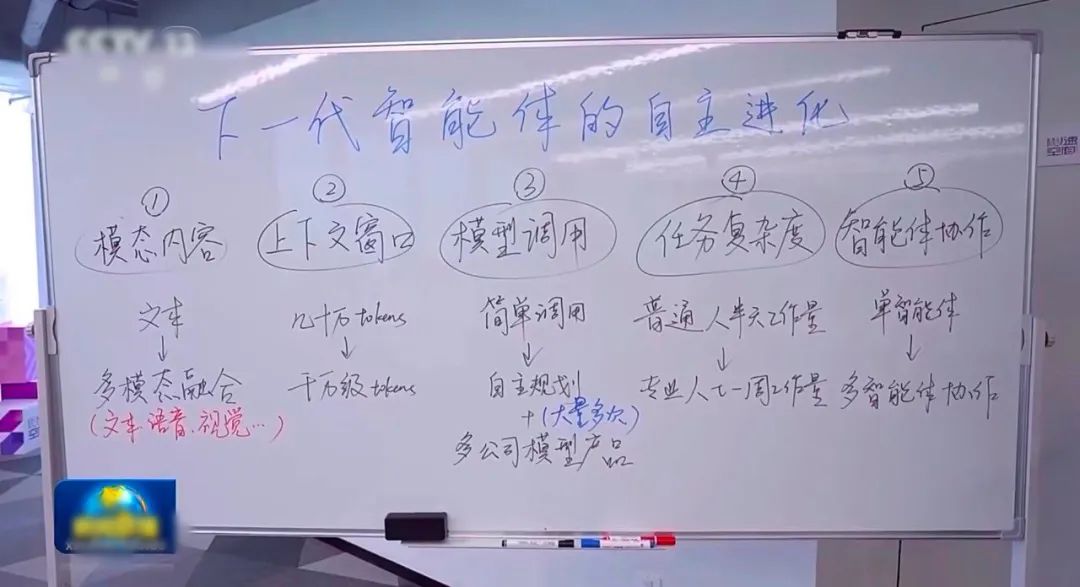 CCTV 13
下一代智能体的自主进化
① ② ③ ④ ⑤
模态内容 上下文窗口 模型调用 任务复杂度 智能体协作
文本 几十万tokens 简单调用 普通人半天工作量 单智能体
↓ ↓ ↓ ↓ ↓
多模态融合 千万级tokens 自主规划 专业人士一周工作量 多智能体协作
(文本.语音.视觉…) +(大量多次)
多公司模型产品
空间